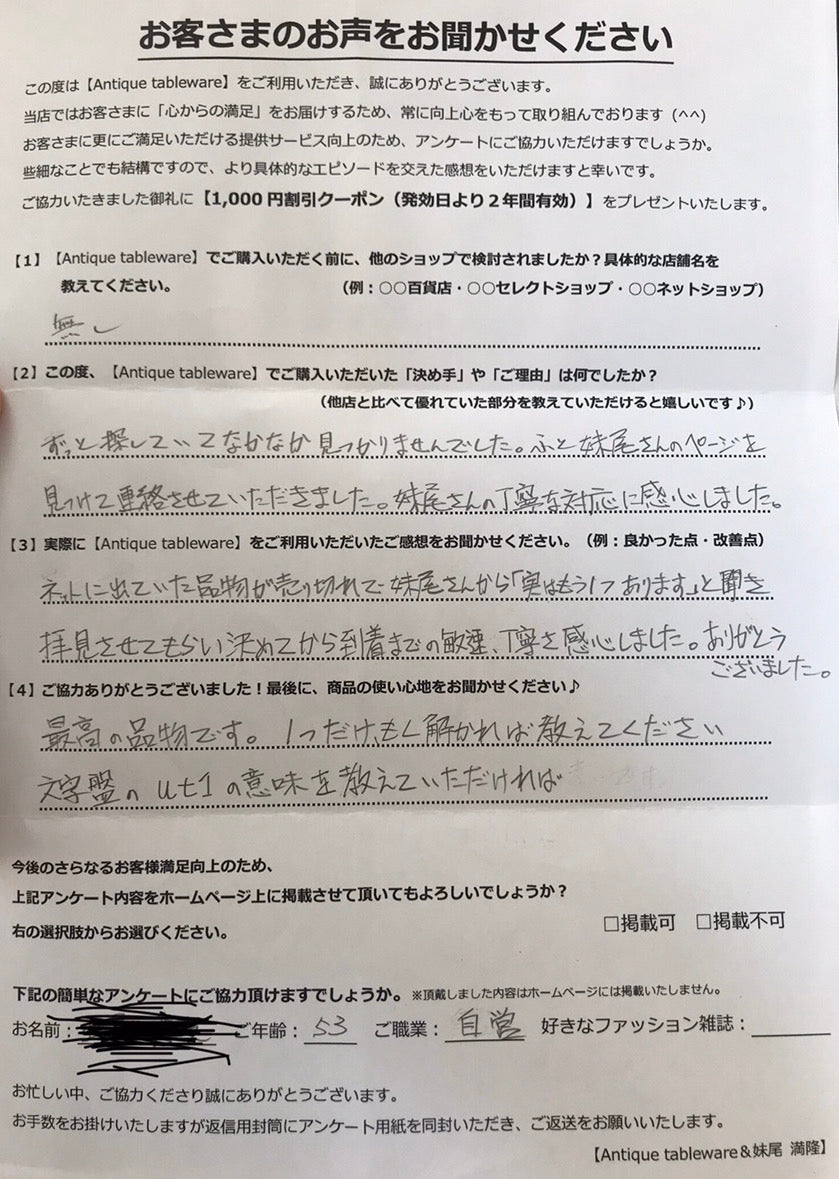 お客さまのお声をお聞かせください
この度は【Antique tableware】をご利用いただき、誠にありがとうございます。
当店ではお客さまに「心からの満足」をお届けするため、常に向上心をもって取り組んでおります (^^)
お客さまに更にご満足いただける提供サービス向上のため、アンケートにご協力いただけますでしょうか。
些細なことでも結構ですので、より具体的なエピソードを交えた感想をいただけますと幸いです。
ご協力いたきました御礼に【1,000円割引クーポン（発効日より２年間有効）】をプレゼントいたします。
【1】【Antique tableware】でご購入いただく前に、他のショップで検討されましたか？具体的な店舗名を
教えてください。 （例：○○百貨店・○○セレクトショップ・○○ネットショップ）
無し
【2】この度、【Antique tableware】でご購入いただいた「決め手」や「ご理由」は何でしたか？
（他店と比べて優れていた部分を教えていただけると嬉しいです♪）
ずっと探していてなかなか見つかりませんでした。ふと妹尾さんのページを
見つけて連絡させていただきました。妹尾さんの丁寧な対応に感心しました。
【3】実際に【Antique tableware】をご利用いただいたご感想をお聞かせください。（例：良かった点・改善点）
ネットに出ていた品物が売り切れで妹尾さんから「実はもう1つあります」と聞き
拝見させてもらい決めてから到着までの敏速、丁寧さ感心しました。ありがとう
ございました。
【4】ご協力ありがとうございました！最後に、商品の使い心地をお聞かせください♪
最高の品物です。1つだけ、もし解かれば教えてください
文字盤のut1の意味を教えていただければ
今後のさらなるお客様満足向上のため、
上記アンケート内容をホームページ上に掲載させて頂いてもよろしいでしょうか？
右の選択肢からお選びください。 □掲載可 □掲載不可
下記の簡単なアンケートにご協力頂けますでしょうか。※頂戴しました内容はホームページには掲載いたしません。
お名前： ご年齢：53 ご職業：自営 好きなファッション雑誌：
お忙しい中、ご協力くださり誠にありがとうございます。
お手数をお掛けいたしますが返信用封筒にアンケート用紙を同封いただき、ご返送をお願いいたします。
【Antique tableware＆妹尾 満隆】